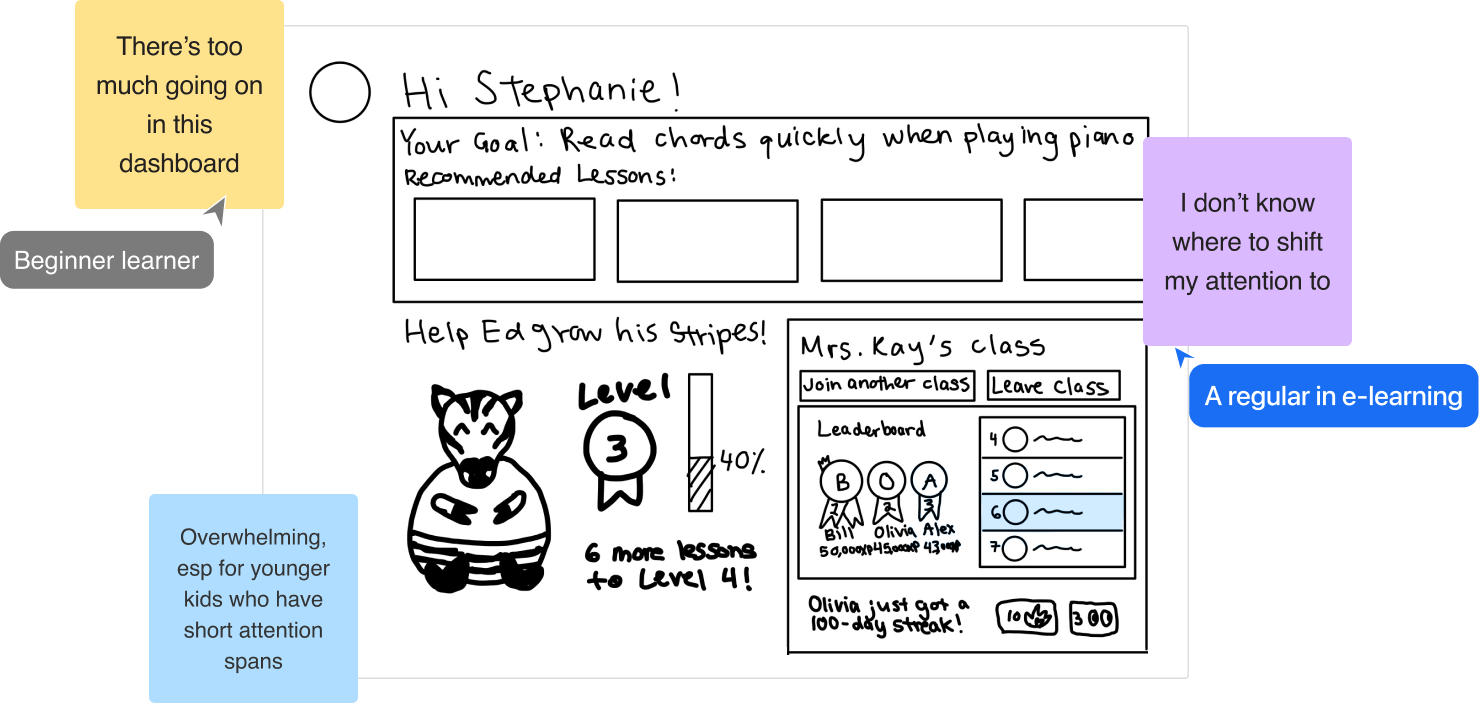 There’s too
much going on
in this
dashboard
Beginner learner
Hi Stephanie!
Your Goal: Read chords quickly when playing piano
Recommended Lessons:
I don’t know
where to shift
my attention to
A regular in e-learning
Help Ed grow his stripes!
Level
3
40%
6 more lessons
to Level 4!
Mrs. Kay's class
Join another class
Leave class
Leaderboard
B O A
1 2 3
Bill Olivia Alex
50,000XP 45,000XP 43,000XP
4
5
6
7
Olivia just got a
100-day streak!
10
3
Overwhelming,
esp for younger
kids who have
short attention
spans